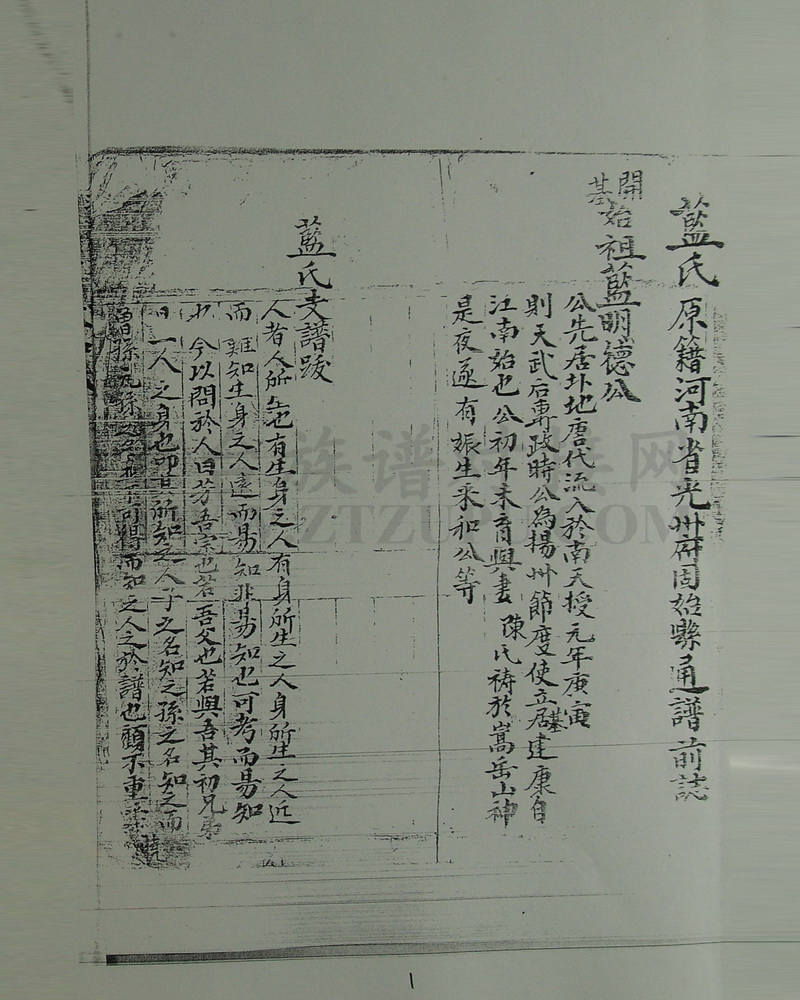 藍氏原籍河南省光州府固始縣通譜前誌
開基始祖藍明德公
公先居卦地唐代流入於南天授元年庚寅
則天武后專政時公為揚州節度使立基居建康自
江南始也公初年未育與妻陳氏禱於嵩岳山神
是夜遂有娠生釆和公等
藍氏支譜跋
人者人所生也有生身之人有身所生之人身所生之人近
而難知生身之人遠而易知非易知也可考而易知
也今以問於人曰若吾宗也若吾父也若與吾其初兄弟
一人之身也即其所知之人子之名知之孫之名知之而
曾孫元孫之名不可得而知之人之於譜也顧不重
族谱
网
ZTZU
.COM
1